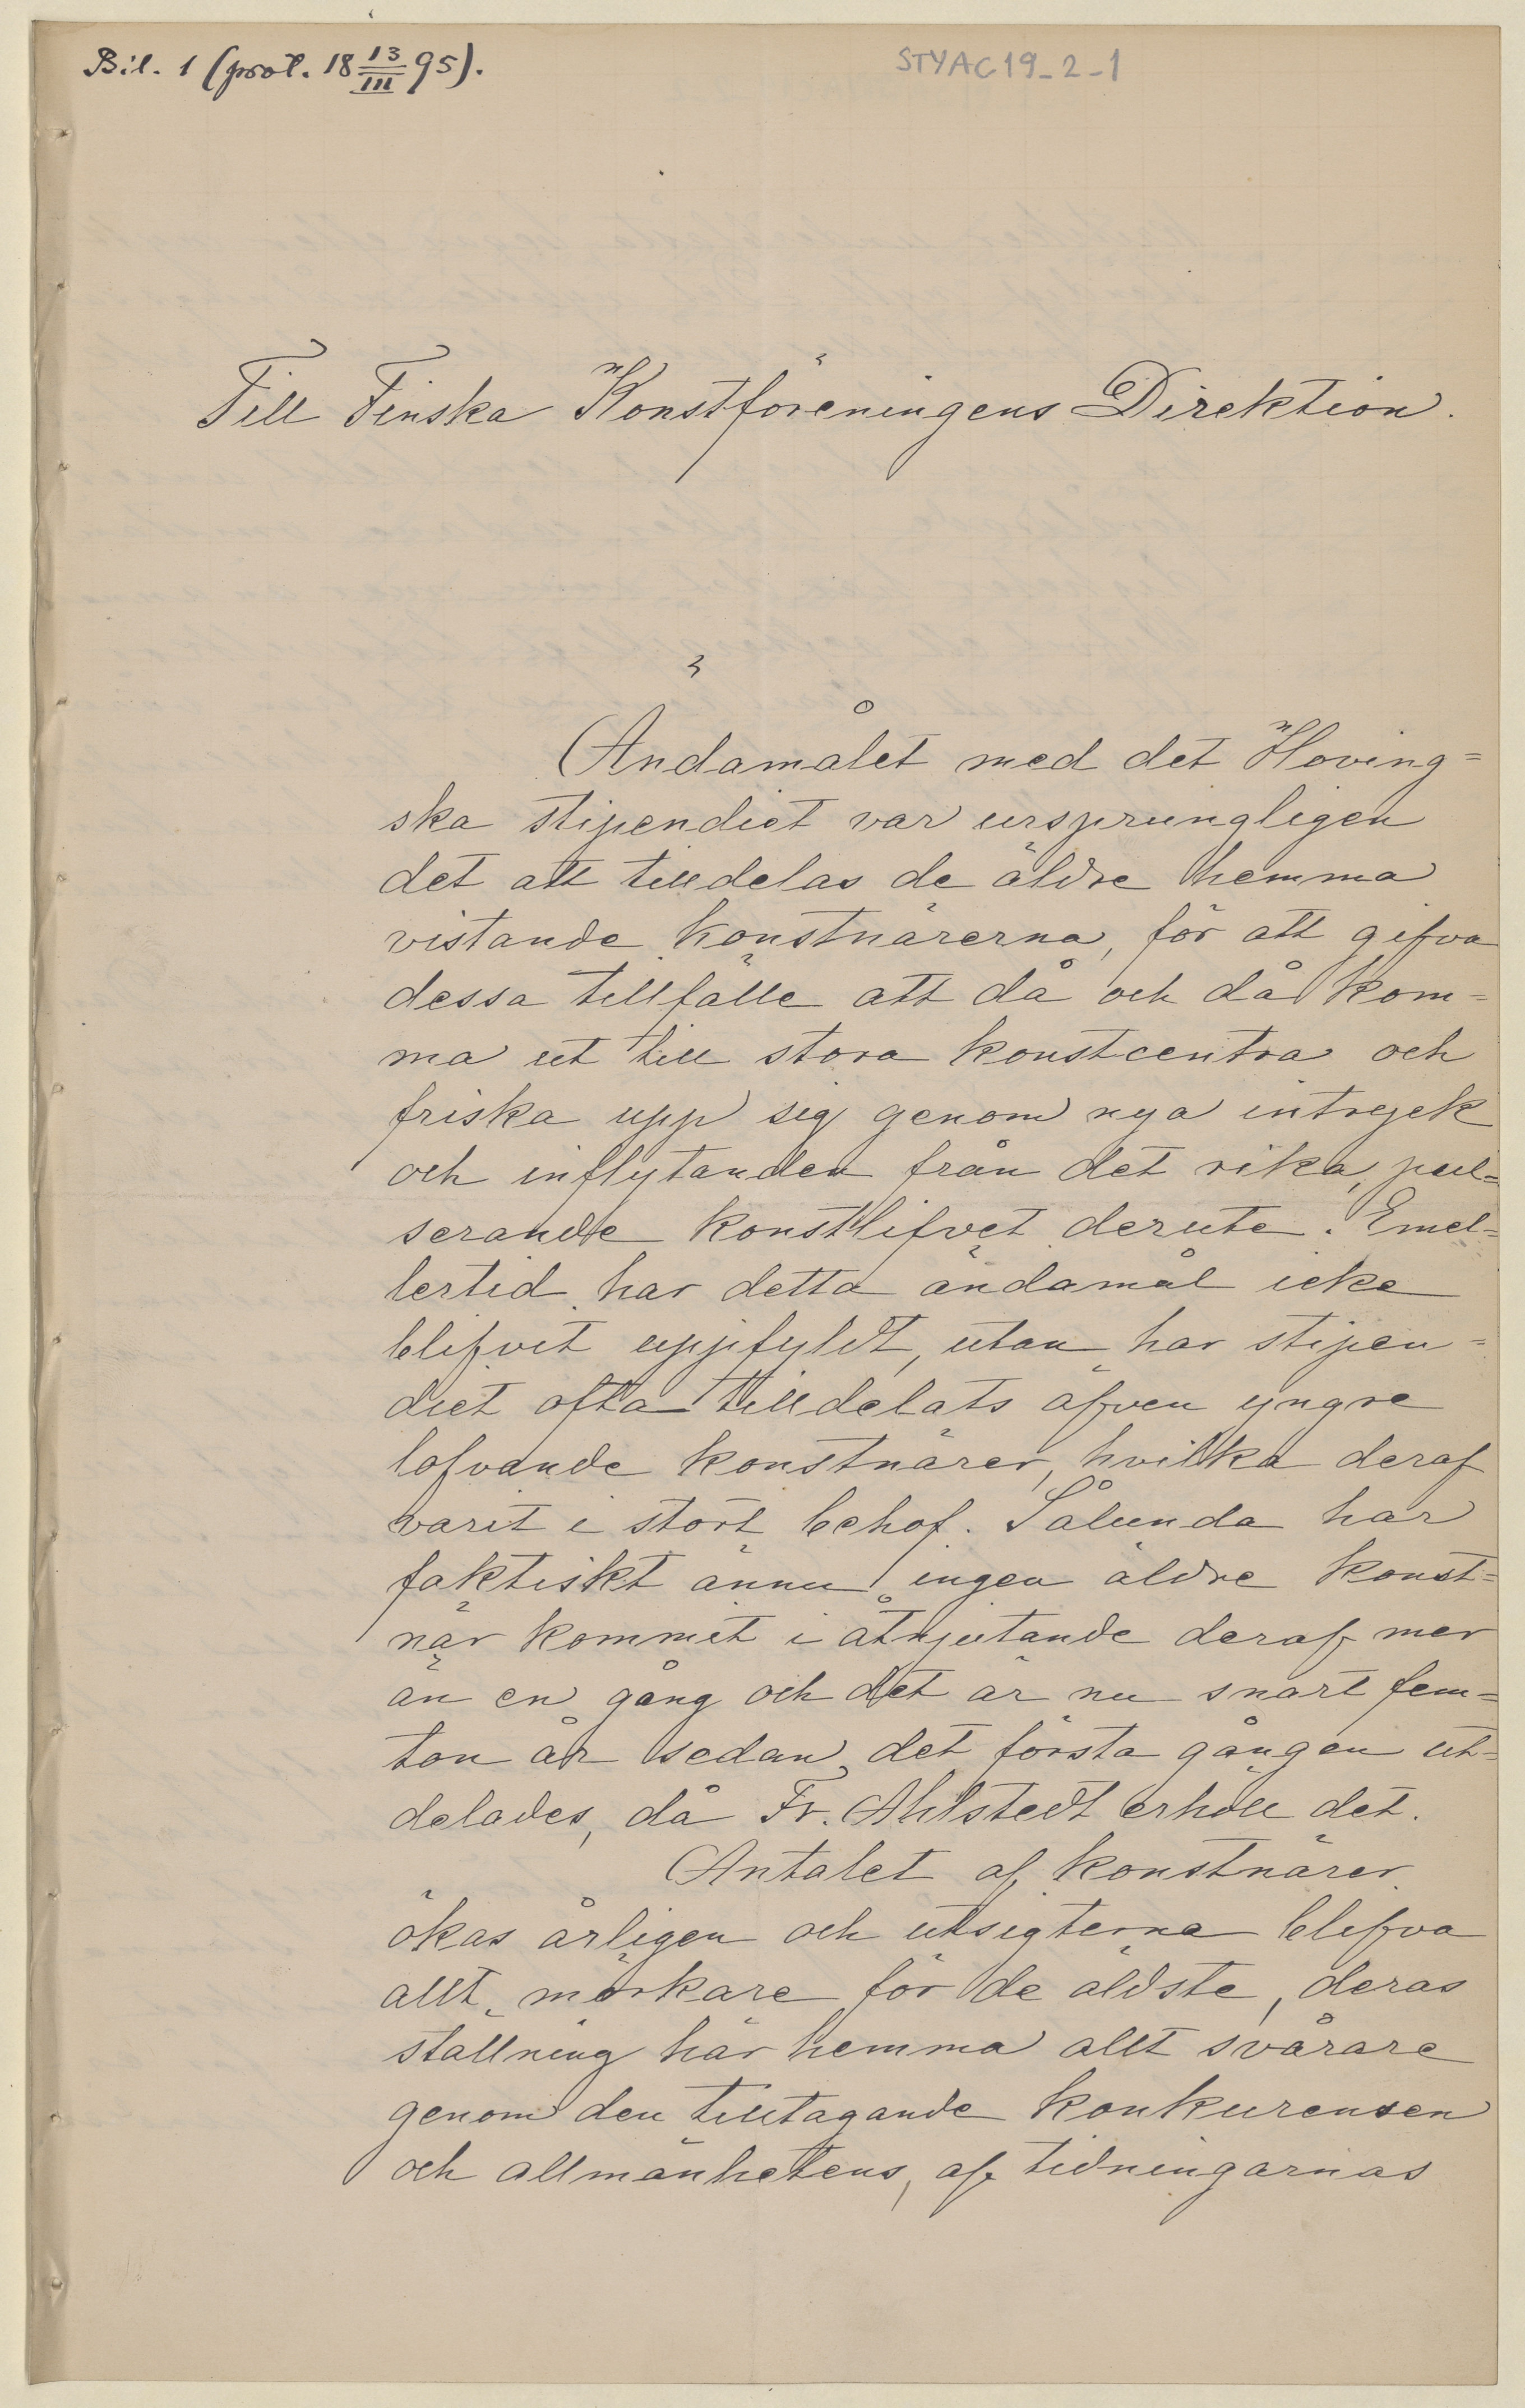 Bil. 1 (prot. 18 13/III 95).
STYAC19_2_1
Till Finska Konstföreningens Direktion.
Ändamålet med det Hoving=
ska stipendiet var ursprungligen
det att tilldelas de äldre hemma
vistande konstnärerna, för att gifva
dessa tillfälle att då och då kom=
ma ut till stora konstcentra och
friska upp sig genom nya intryck
och inflytanden från det rika, pul=
serande konstlifvet derute. Emel=
lertid har detta ändamål icke
blifvit uppfyldt, utan har stipen=
diet ofta tilldelats äfven yngre
lofvande konstnärer, hvilka deraf
varit i stort behof. Sålunda har
faktiskt ännu ingen äldre konst=
när kommit i åtnjutande deraf mer
än en gång och det är nu snart fem=
ton år sedan det första gången ut=
delades, då Fr. Ahlstedt erhöll det.
Antalet af konstnärer
ökas årligen och utsigterna blifva
allt mörkare för de äldste, deras
ställning här hemma allt svårare
genom den tilltagande konkurensen
och allmänhetens, af tidningarnas